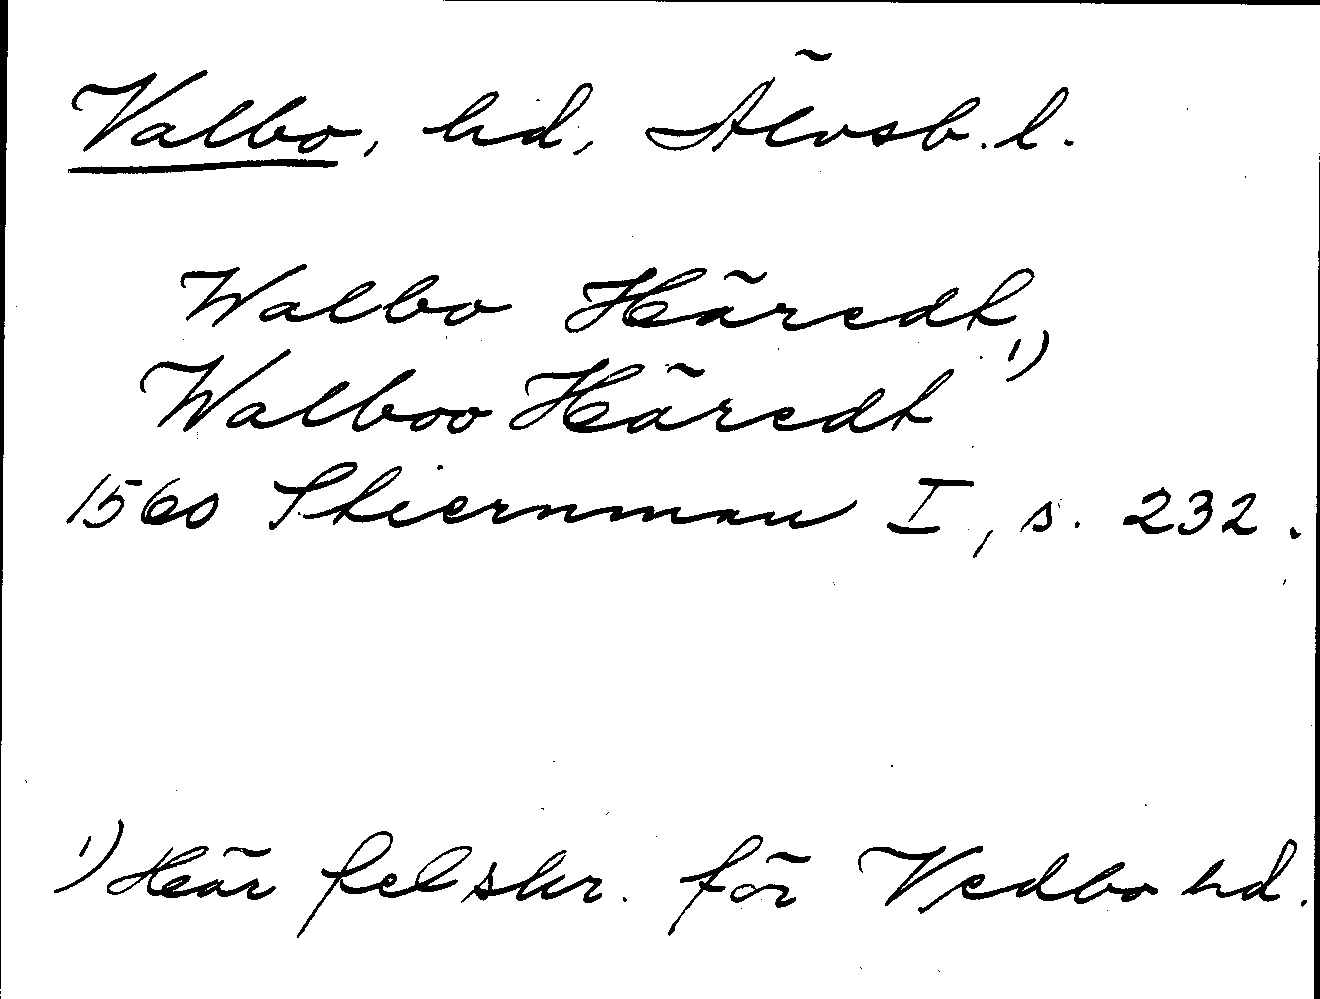 Valbo, hd, Älvsb. l.
Walbo Häredt,
Walboo Häredt 1)
1560 Stiernman I, s. 232.
1) Här felskr. för Vedbo hd.